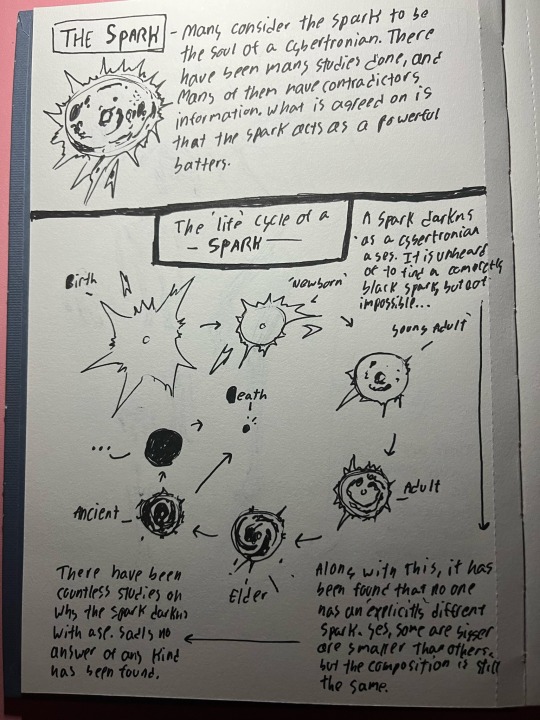 THE SPARK
- Many consider the spark to be
the soul of a Cybertronian. There
have been many studies done, and
Many of them have contradictory
information. What is agreed on is
that the spark acts as a powerful
battery.
The 'life' cycle of a
- SPARK -
A spark darkns
as a cybertronian
ages. It is unheard
of to find a completly
black spark, but not
impossible...
Birth
'Newborn'
young Adult
Adult
Elder
Ancient
...
Death
Along with this, it has
been found that no one
has an explicitly different
Spark. Yes, some are bigger
are smaller than others,
but the composition is still
the same.
There have been
countless studies on
why the spark darkns
with age. Sadly no
answer of any kind
has been found.